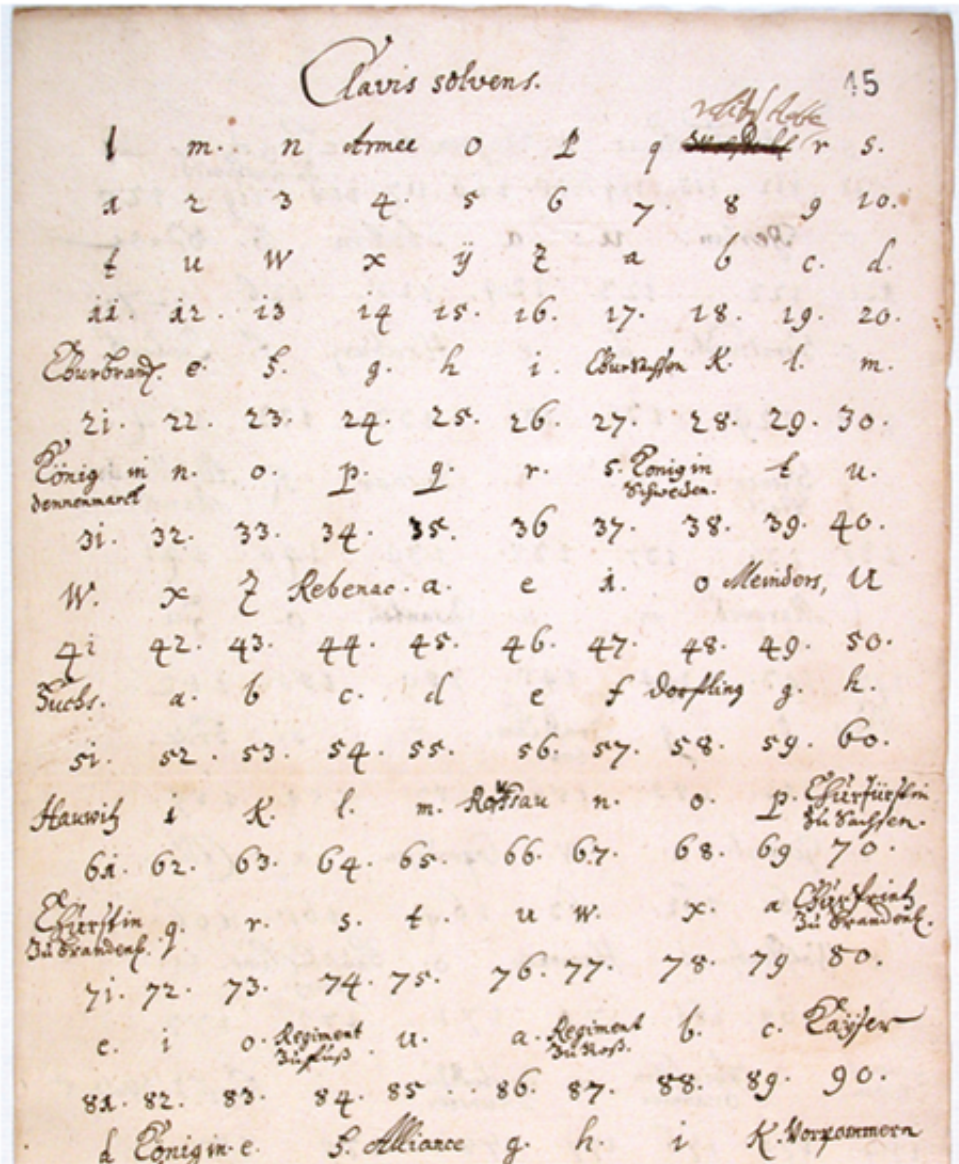 Clavis solvens. 45
l m. n Armee o p q r s.
1 2 3 4. 5 6 7. 8 9 10.
t u w x ÿ z a b c. d.
11 12. 13 14 15. 16. 17. 18. 19. 20.
Churbrand. e. f. g. h i. Chursachsen K. l. m.
21. 22. 23. 24. 25. 26. 27. 28. 29. 30.
König in n. o. p. q. r. s. König in t u.
Dennenmarck Schweden.
31. 32. 33. 34. 35. 36 37. 38. 39. 40.
W. x z Rebenac. a. e i. o Meinders, u
41 42. 43. 44. 45. 46. 47. 48. 49. 50.
Fuchs. a. b c. d e f Dorfling g. h.
51. 52. 53. 54. 55. 56. 57. 58. 59. 60.
Hauwitz i K. l. m. n. o. p. Churfürst in
Zu Sachsen.
61. 62. 63. 64. 65. 66. 67. 68. 69 70.
Churfürstin q. r. s. t. u w. x. a Churprintz
Zu Brandenb. Zu Brandenb.
71. 72. 73. 74. 75. 76. 77. 78. 79 80.
e. i o. Regiment u. a. Regiment b. c. Kaÿser
Zu fuß Zu Roß.
81. 82. 83. 84. 85. 86. 87. 88. 89. 90.
d Königin. e. f. Alliance g. h. i K. Vorpommern